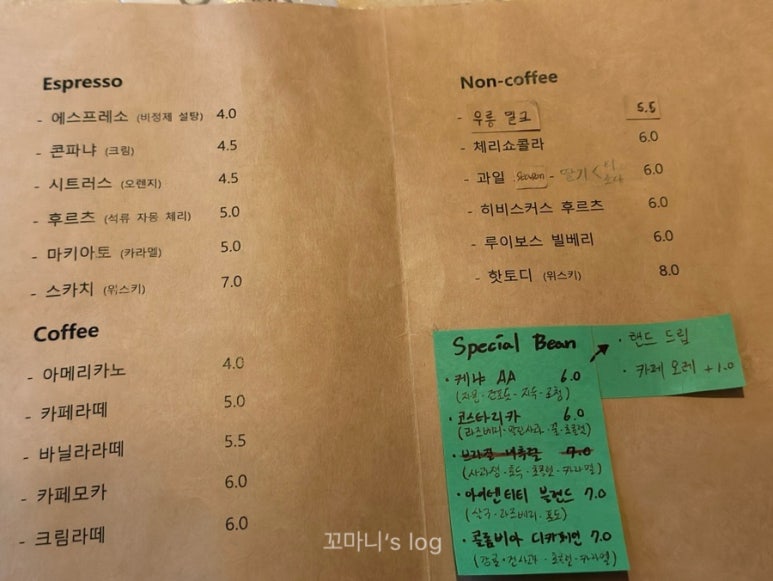 Espresso
- 에스프레소 (비정제 설탕) 4.0
- 콘파냐 (크림) 4.5
- 시트러스 (오렌지) 4.5
- 후르츠 (석류 자몽 체리) 5.0
- 마키아토 (카라멜) 5.0
- 스카치 (위스키) 7.0
Coffee
- 아메리카노 4.0
- 카페라떼 5.0
- 바닐라라떼 5.5
- 카페모카 6.0
- 크림라떼 6.0
Non-coffee
- 우롱 밀크 5.5
- 체리쇼콜라 6.0
- 과일 season - 딸기 < 6.0
- 히비스커스 후르츠 6.0
- 루이보스 빌베리 6.0
- 핫토디 (위스키) 8.0
Special Bean
· 케냐 AA 6.0
(자몽 · 자두 ·
· 코스타리카 6.0
(라즈베리 · · 꿀 · 초콜릿)
· 브라질 7.0
· 초콜릿 · 카라멜)
· 아이덴티티 블렌드 7.0
(살구 · 라즈베리 · 포도)
· 콜롬비아 디카페인 7.0
(감귤 · · 초콜릿 · 카라멜)
· 핸드 드립
· 카페 오레 +1.0
꼬마니's log